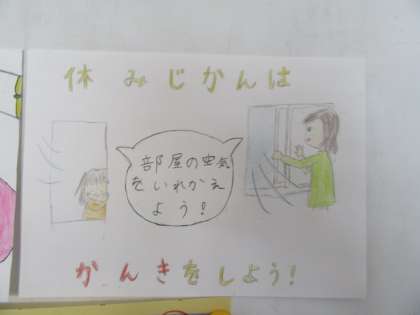 休みじかんは
部屋の空気
をいれかえ
よう!
かんきをしよう!